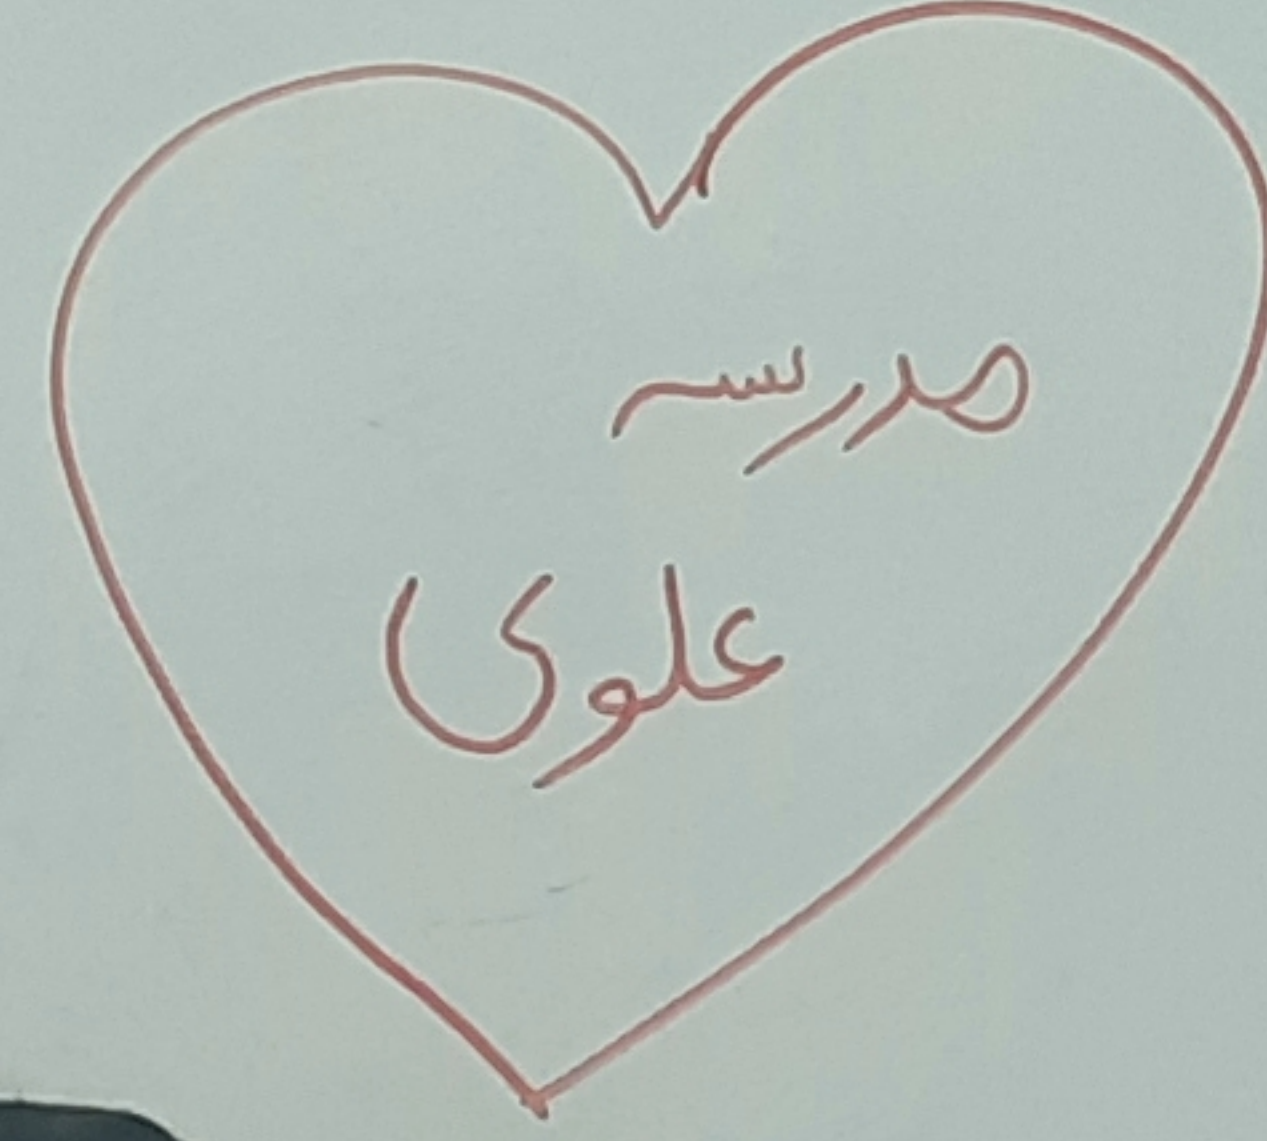 مدرسه
علوی